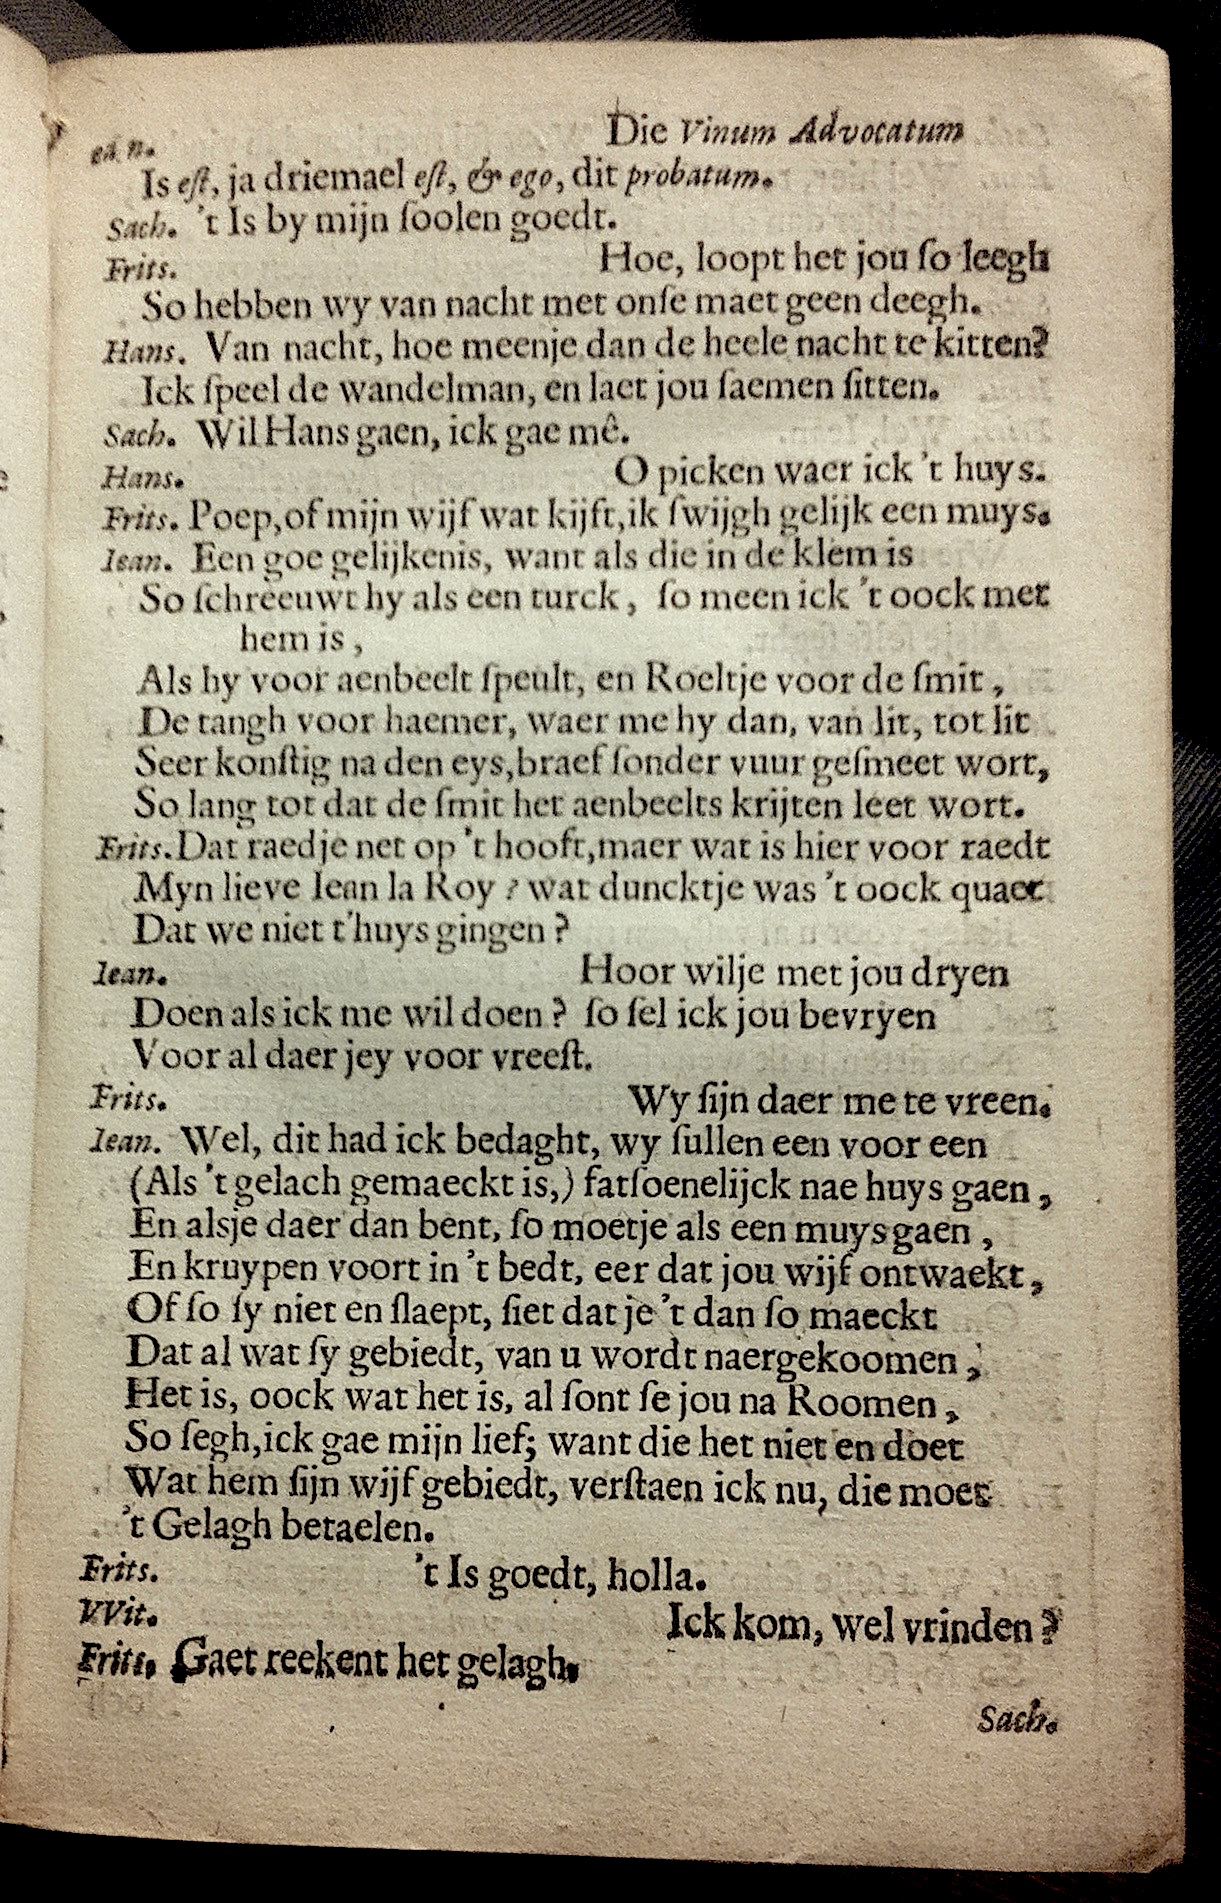 ean. Die Vinum Advocatum
Is eſt, ja driemael eſt, & ego, dit probatum.
Sach. 't Is by mijn ſoolen goedt.
Frits. Hoe, loopt het jou ſo leegh
So hebben wy van nacht met onſe maet geen deegh.
Hans. Van nacht, hoe meenje dan de heele nacht te kitten?
Ick ſpeel de wandelman, en laet jou ſaemen ſitten.
Sach. Wil Hans gaen, ick gae mê.
Hans. O picken waer ick 't huys.
Frits. Poep, of mijn wijf wat kijft, ik ſwijgh gelijk een muys.
Iean. Een goe gelijkenis, want als die in de klem is
So ſchreeuwt hy als een turck, ſo meen ick 't oock met
hem is,
Als hy voor aenbeelt ſpeult, en Roeltje voor de ſmit,
De tangh voor haemer, waer me hy dan, van lit, tot lit
Seer konſtig na den eys, braef ſonder vuur geſmeet wort,
So lang tot dat de ſmit het aenbeelts krijten leet wort.
Frits. Dat raedje net op 't hooft, maer wat is hier voor raedt
Myn lieve Iean la Roy? wat duncktje was 't oock quaet
Dat we niet t'huys gingen?
Iean. Hoor wilje met jou dryen
Doen als ick me wil doen? ſo ſel ick jou bevryen
Voor al daer jey voor vreeſt.
Frits. Wy ſijn daer me te vreen.
Iean. Wel, dit had ick bedaght, wy ſullen een voor een
(Als 't gelach gemaeckt is,) fatſoenelijck nae huys gaen,
En alsje daer dan bent, ſo moetje als een muys gaen,
En kruypen voort in 't bedt, eer dat jou wijf ontwaekt,
Of ſo ſy niet en ſlaept, ſiet dat je 't dan ſo maeckt
Dat al wat ſy gebiedt, van u wordt naergekoomen,
Het is, oock wat het is, al ſont ſe jou na Roomen,
So ſegh, ick gae mijn lief; want die het niet en doet
Wat hem ſijn wijf gebiedt, verſtaen ick nu, die moet
't Gelagh betaelen.
Frits. 't Is goedt, holla.
VVit. Ick kom, wel vrinden?
Frits. Gaet reekent het gelagh.
Sach.